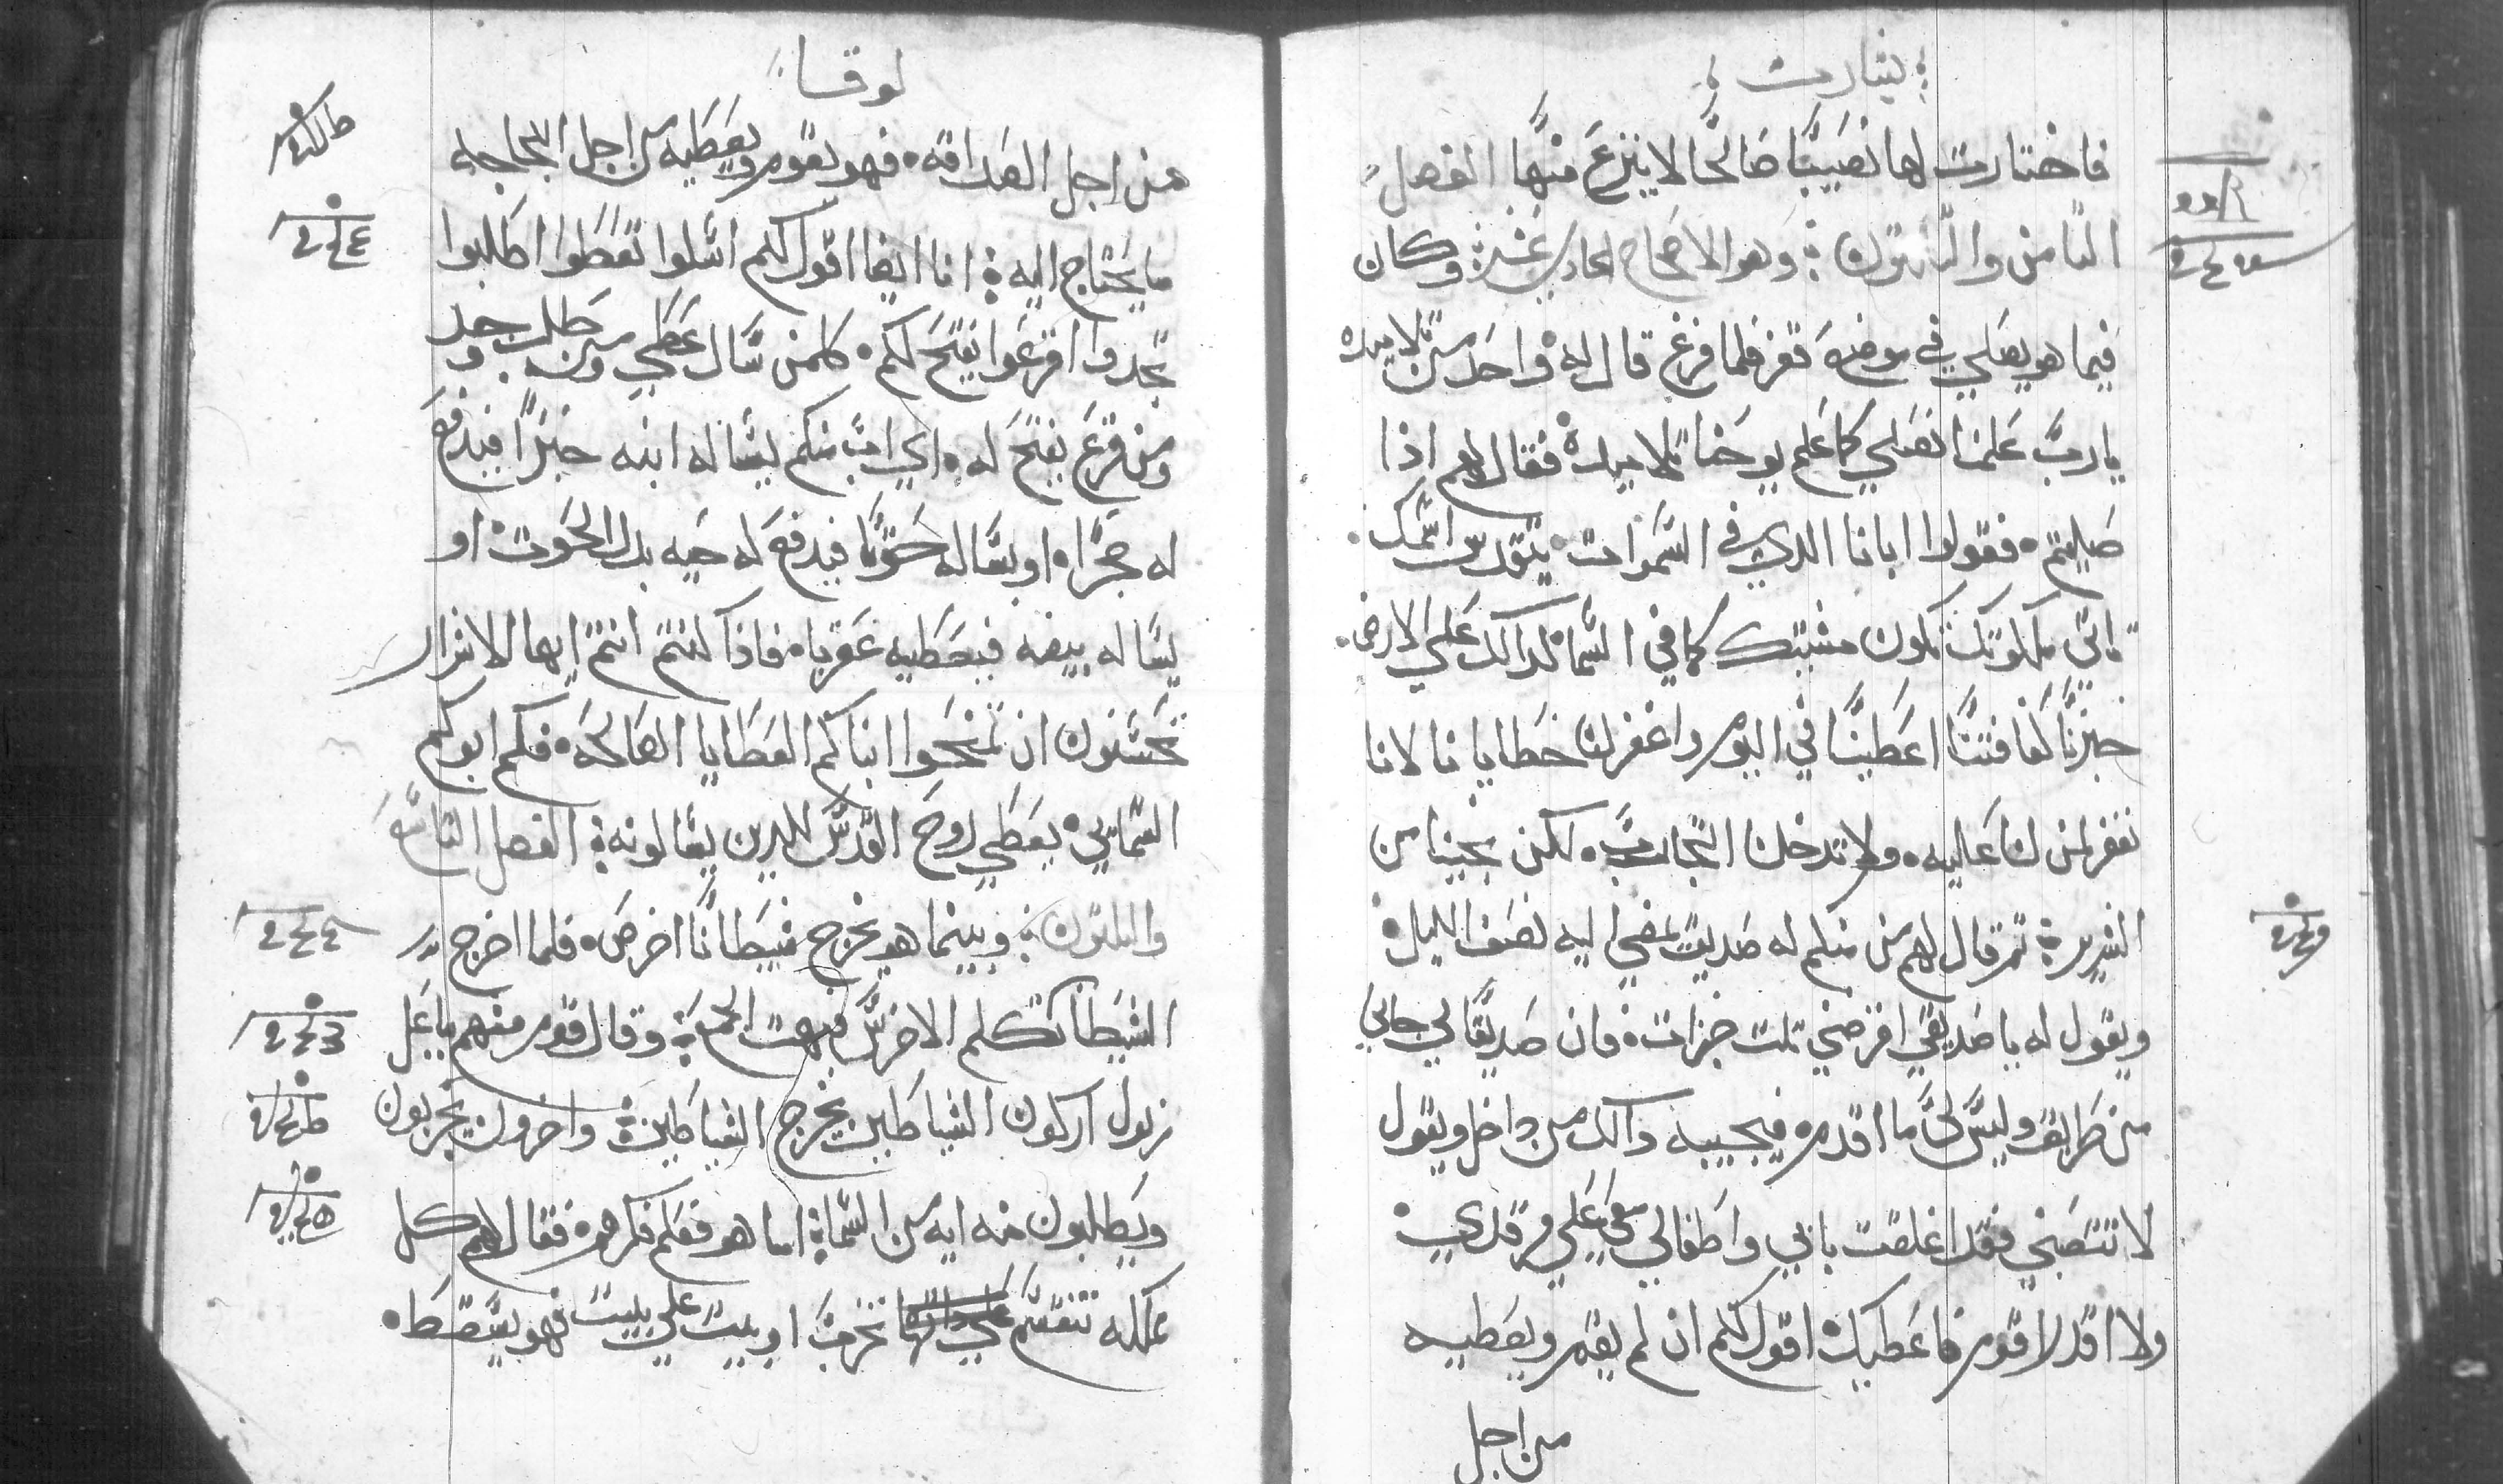 بشارت
فاختارت لها نصيبًا صالحًا لا ينزع منها الفصل
الثامن والثلاثون وهو الاصحاح الحادي عشر وكان
فيما هو يصلي في موضع قفر فلما فرغ قال له واحد من تلاميده
يارب علمنا نصلي كما علم يوحنا تلاميده فقال لهم اذا
صليتم فقولوا ابانا الدي في السموات يتقدس اسمك
تاتي ملكوتك تكون مشيتك كما في السما كدالك علي الارض
خبزنا كفافنا اعطينا في اليوم واغفر لنا خطايانا لانا
نغفر لمن لنا عليه ولا تدخلنا التجارب لكن نجينا من
الشرير ثم قال لهم من منكم له صديق يمضي اليه نصف الليل
ويقول له يا صديقي اقرضني تلت خبزات فان صديقًا لي جاني
من طريق وليس لي ما اقدم فيجيبه دالك من داخل ويقول
لا تتعبني فقد اغلقت بابي واطفالي معي علي مرقدي
ولا اقدر اقوم فاعطيك اقول لكم ان لم يقم ويعطيه
من اجل
لوقا
من اجل الصداقه فهو يقوم ويعطيه من اجل الجاجه
ما يحتاج اليه انا ايضا اقول لكم اسلوا تعطوا اطلبوا
تجدوا اقرعوا يفتح لكم كلمن سال عطي ومن طلب وجد
ومن قرع يفتح له اي اب منكم يساله ابنه خبزًا فيدفع
له حجرًا او يساله حوتًا فيدفع له حيه بدل الحوت او
يساله بيضه فيعطيه عقربا فاذا كنتم انتم ايها الاشرار
تحسنون ان تمنحوا ابناكم العطايا الصالحه فكم ابوكم
السمايي يعطي روح القدس للدين يسالونه الفصل التاسع
والثلثون وبينما هو يخرج شيطانًا اخرس فلما اخرج
الشيطان تكلم الاخرس فبهت الجمع وقال قوم منهم بباعل
زبول اركون الشياطين يخرج الشياطين واخرون يجربون
ويطلبون منه ايه من السما اما هو فعلم فكرهم فقال لهم كل
مملكه تنقسم علي داتها تخرب او بيت علي بيت فهو يسقط